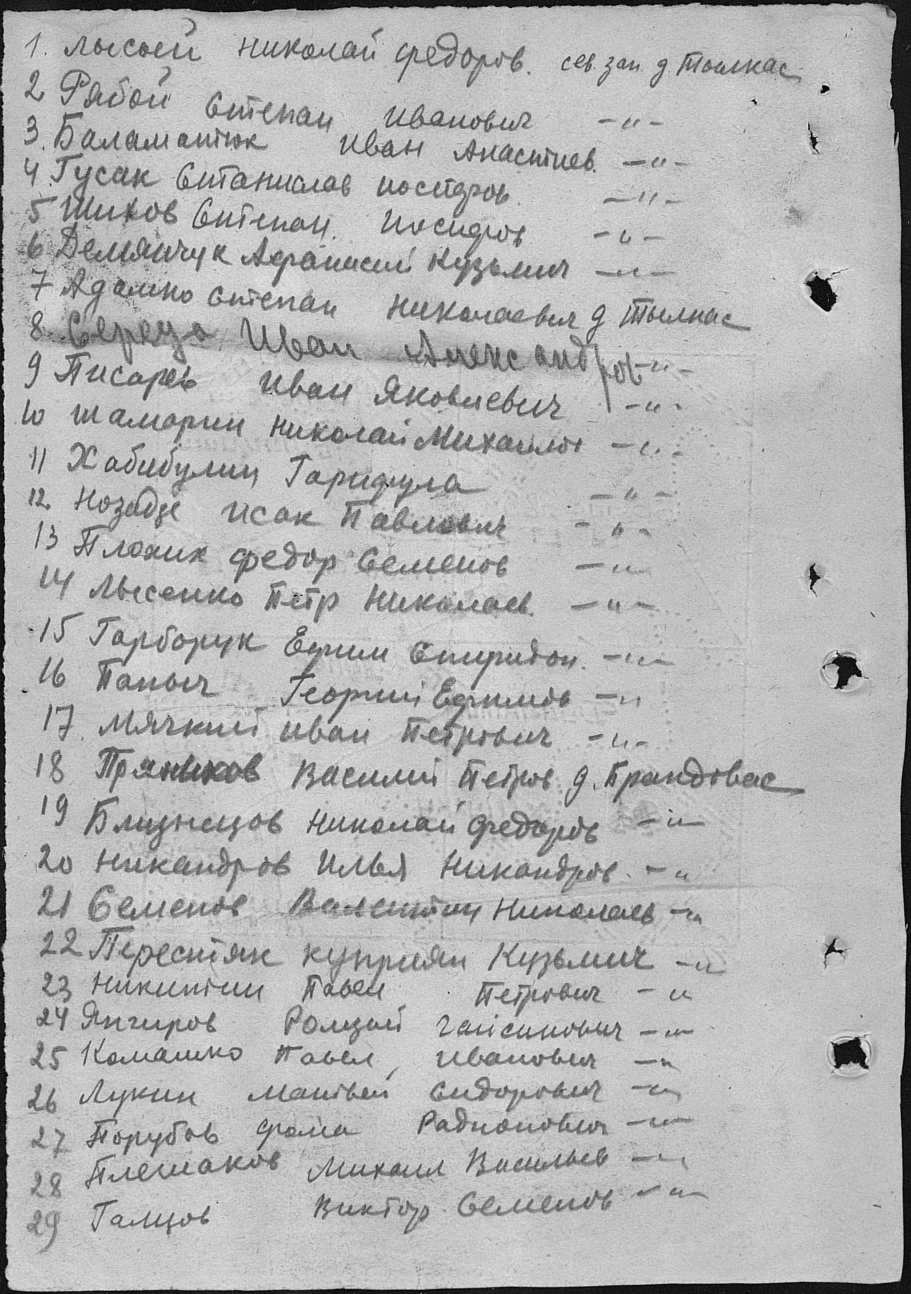 1. Лысый Николай Федоров. сев. зап. д Тылкас
2 Рябой Степан Иванович -"-
3. Баламантюк Иван Анастиев. -"-
4. Гусак Станислав Иосифов -"-
5 Шихов Степан Иосифов -"-
6 Демянчук Афанасий Кузьмич -"-
7 Адамко Степан Николаевич д Тылкас
8 Середа Иван Александров -"-
9 Писарев Иван Яковлевич -"-
10 Шамарин Николай Михайлов -"-
11 Хабибулин Гарифула -"-
12 Нозадзе Исак Павлович -"-
13 Плохих Федор Семенов -"-
14 Лысенко Петр Николаев. -"-
15 Гарборук Ефим Спиридон. -"-
16 Папыч Георгий Ефимов -"-
17. Мячкий Иван Петрович -"-
18 Пряников Василий Петров д. Прандовас
19 Близнецов Николай Федоров -"-
20 Никандров Илья Никандров. -"
21 Семенов Валентин Николаев -"-
22 Перестяк Куприян Кузьмич -"-
23 Никитин Павел Петрович -"
24 Янгиров -"-
25 Комашко Павел Иванович -"-
26 Лукин Матвей Сидорович -"-
27 Порубов Фома Радионович -"-
28 Плешаков Михаил Васильев -"-
29 Галцов Виктор Семенов -"-